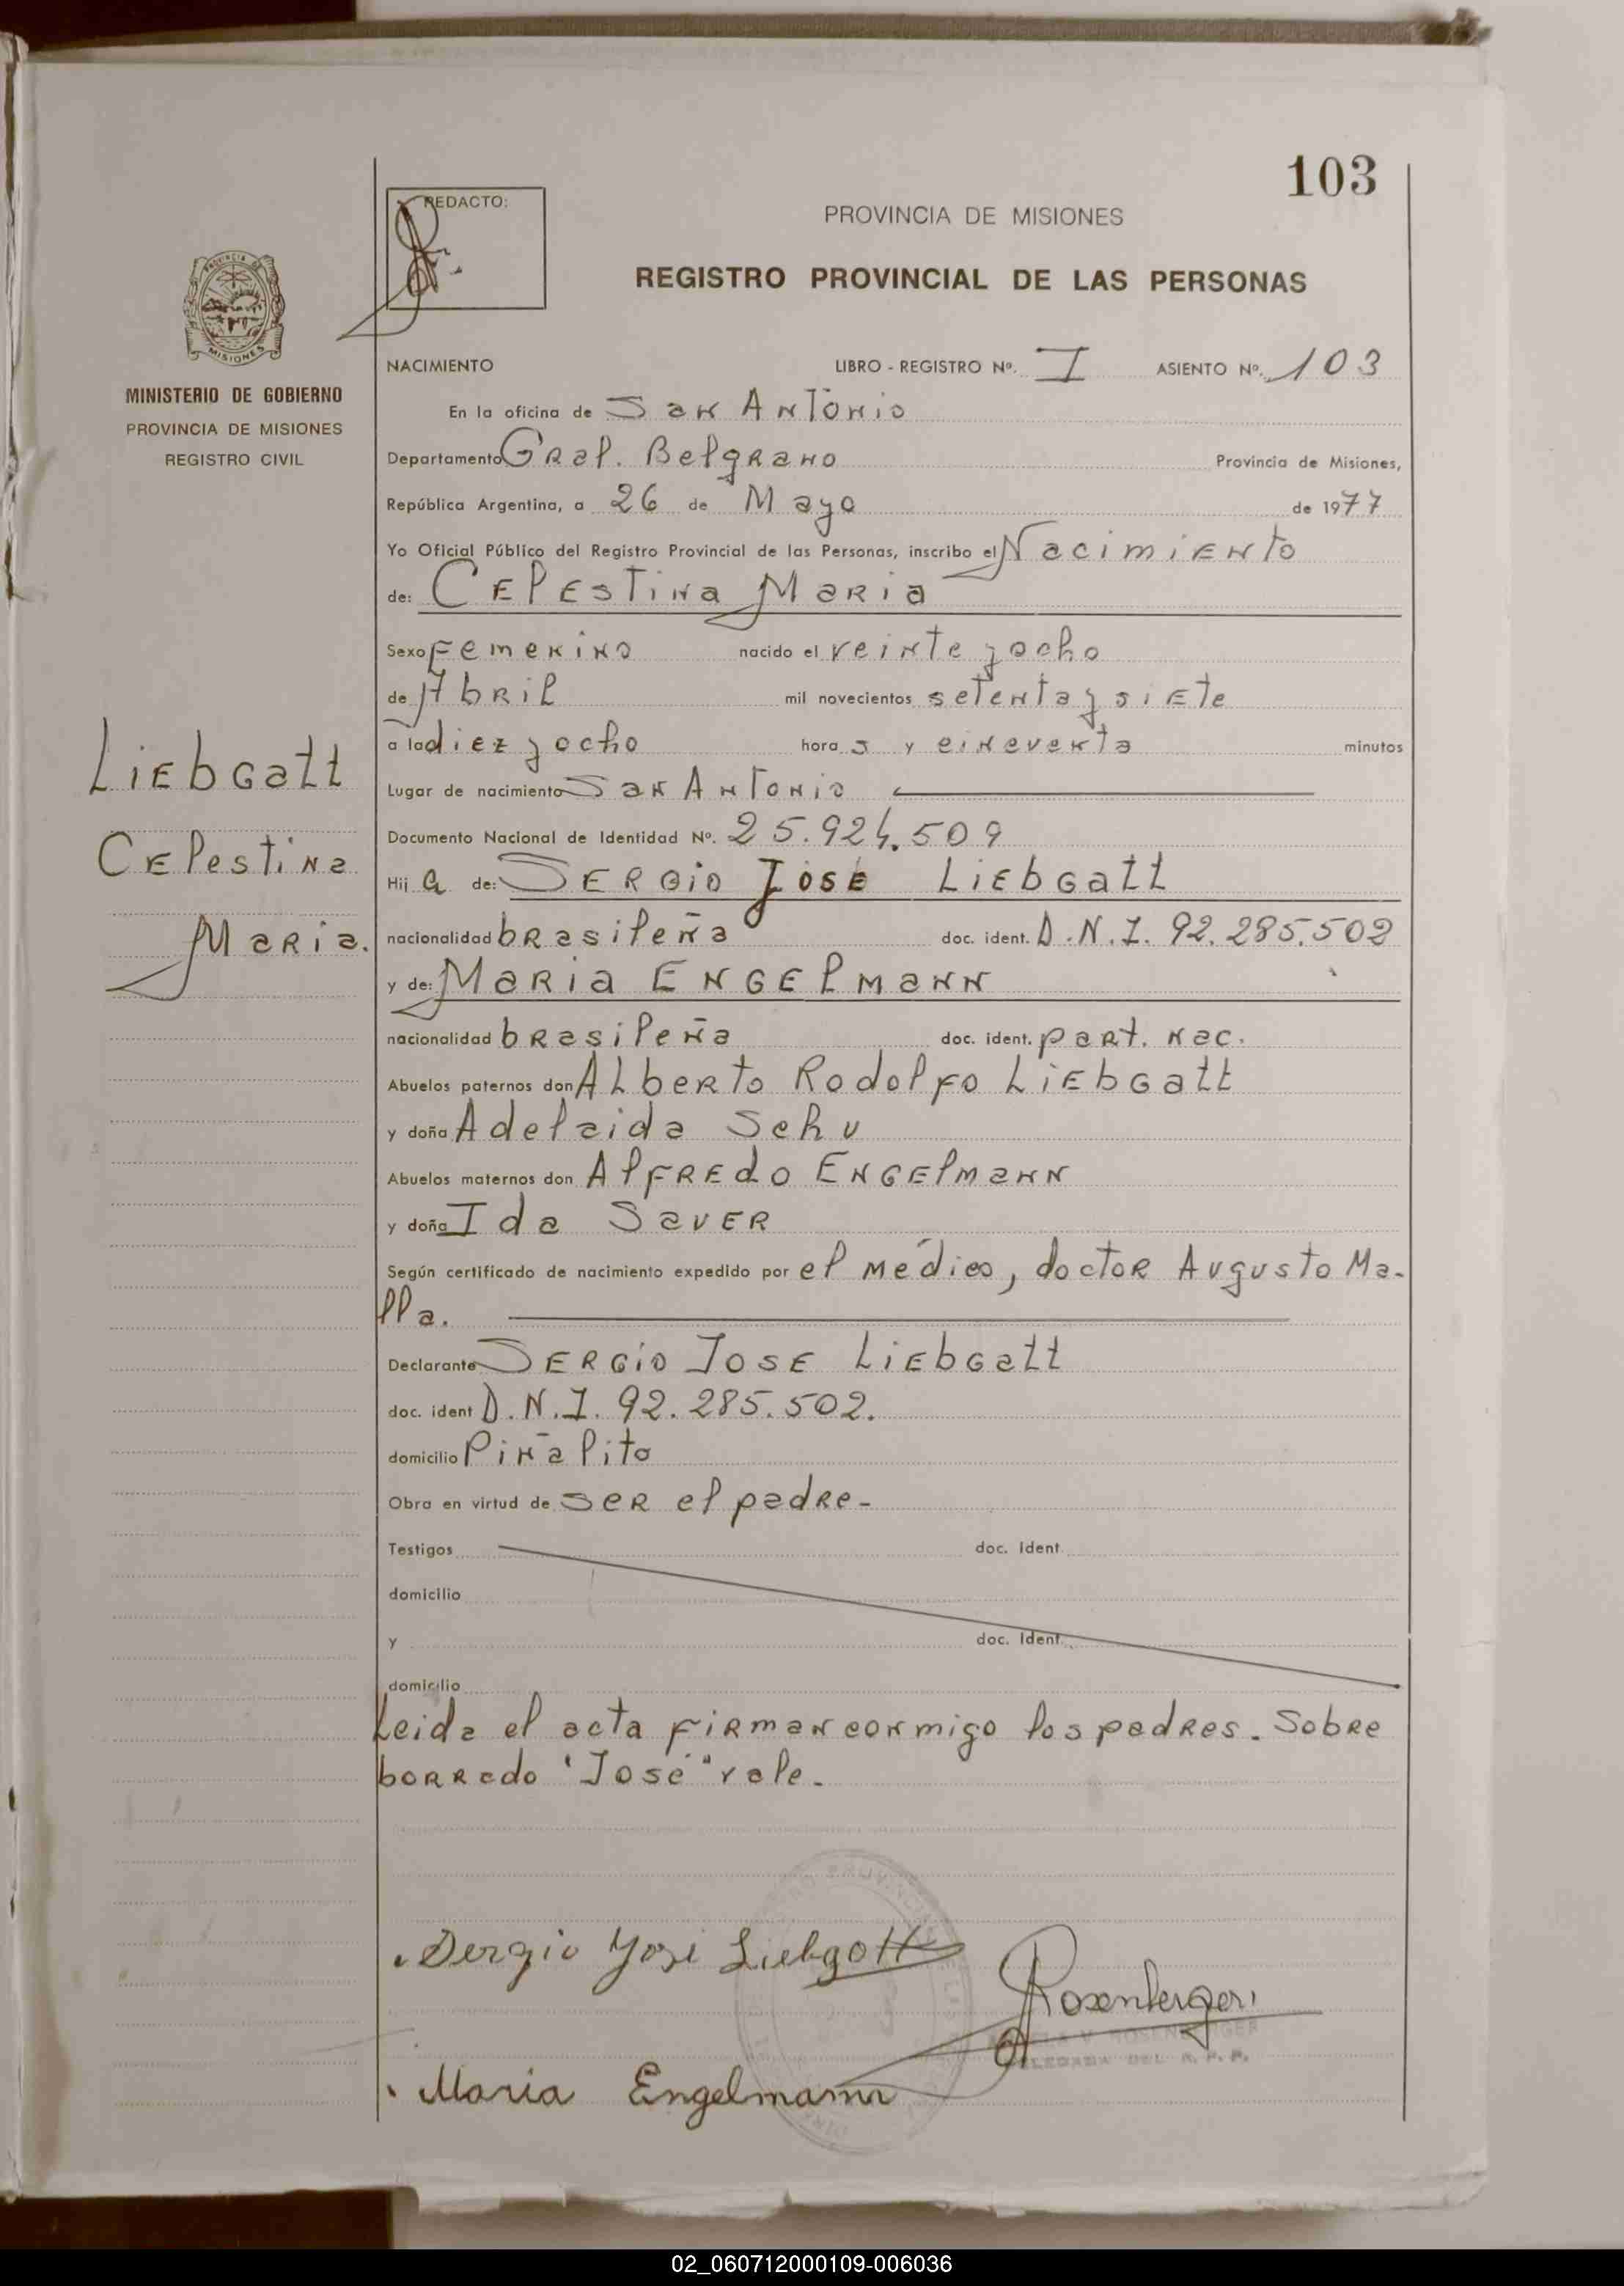 103
REDACTO:
PROVINCIA DE MISIONES
REGISTRO PROVINCIAL DE LAS PERSONAS
PROVINCIA DE
MISIONES
MINISTERIO DE GOBIERNO
PROVINCIA DE MISIONES
REGISTRO CIVIL
NACIMIENTO LIBRO - REGISTRO Nº. I ASIENTO Nº. 103
En la oficina de San Antonio
Departamento Gral. Belgrano Provincia de Misiones,
República Argentina, a 26 de Mayo de 1977
Yo Oficial Público del Registro Provincial de las Personas, inscribo el Nacimiento
de: Celestina Maria
Sexo Femenino nacido el veinte y ocho
de Abril mil novecientos setenta y siete
a la diez y ocho hora s y cincuenta minutos
Lugar de nacimiento San Antonio
Documento Nacional de Identidad Nº. 25.924.509
Hij a de: Sergio José Liebgatt
nacionalidad brasileña doc. ident. D.N.I. 92.285.502
y de: Maria Engelmann
nacionalidad brasileña doc. ident. part. nac.
Abuelos paternos don Alberto Rodolfo Liebgatt
y doña Adelaida Schu
Abuelos maternos don Alfredo Engelmann
y doña Ida Sauer
Según certificado de nacimiento expedido por el médico, doctor Augusto Ma-
lla.
Declarante Sergio Jose Liebgatt
doc. ident D.N.I. 92.285.502.
domicilio Piñalito
Obra en virtud de ser el padre-
Testigos doc. Ident.
domicilio
y doc. Ident.
domicilio
Leida el acta firman conmigo los padres. Sobre
borrado "José" vale.
Liebgatt
Celestina
Maria.
Sergio José Liebgott
Rosenberger
ROSENBERGER
DELEGADA DEL R. P. P.
Maria Engelmann
02_060712000109-006036